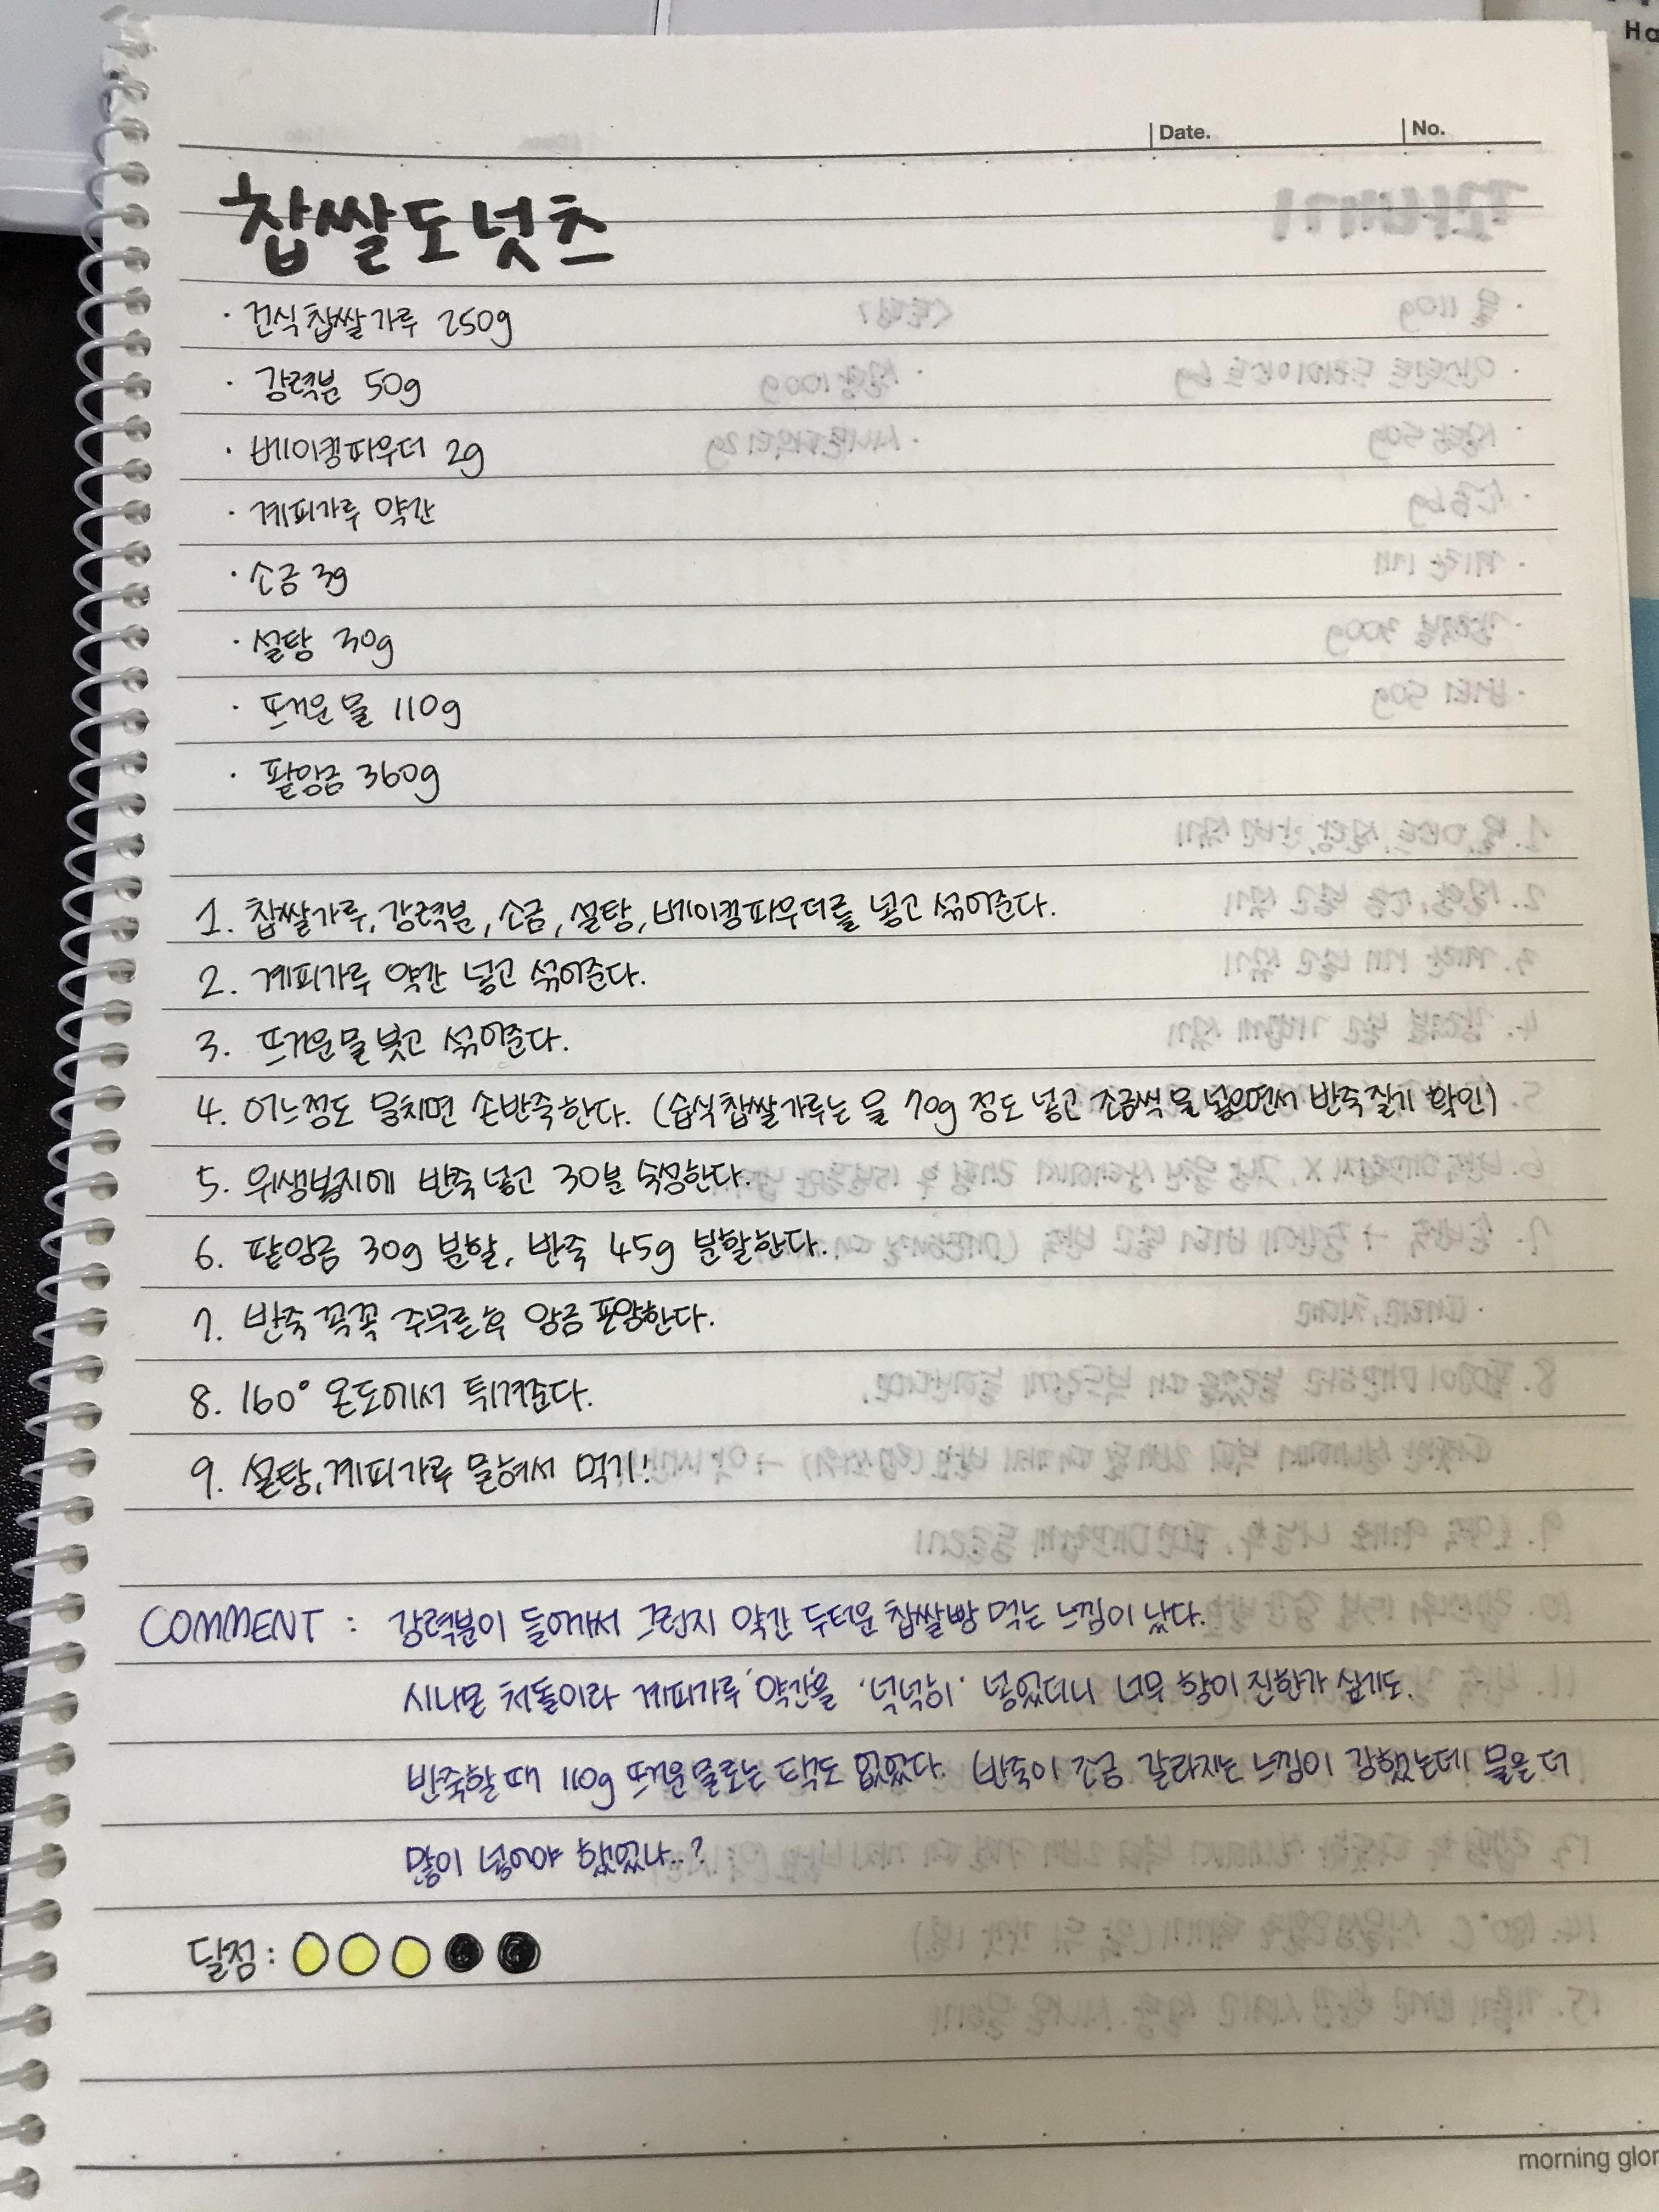 Ha
Date. No.
찹쌀도넛츠
· 건식찹쌀가루 250g
· 강력분 50g
· 베이킹파우더 2g
· 계피가루 약간
· 소금 3g
· 설탕 30g
· 뜨거운 물 110g
· 팥앙금 360g
1. 찹쌀가루, 강력분, 소금, 설탕, 베이킹파우더를 넣고 섞어준다.
2. 계피가루 약간 넣고 섞어준다.
3. 뜨거운물 붓고 섞어준다.
4. 어느정도 뭉치면 손반죽한다. (습식찹쌀가루는 물 70g 정도 넣고 조금씩 물 넣으면서 반죽질기 확인)
5. 위생봉지에 반죽 넣고 30분 숙성한다.
6. 팥앙금 30g 분할, 반죽 45g 분할한다.
7. 반죽 꼭꼭 주무른후 앙금 포앙한다.
8. 160° 온도에서 튀겨준다.
9. 설탕, 계피가루 묻혀서 먹기!
COMMENT : 강력분이 들어가서 그런지 약간 두터운 찹쌀빵 먹는 느낌이 났다.
시나몬 처돌이라 계피가루 '약간'을 '넉넉히' 넣었더니 너무 향이 진한가 싶기도.
반죽할 때 110g 뜨거운 물로는 택도 없었다. (반죽이 조금 갈라지는 느낌이 강했는데 물을 더
많이 넣어야 했었나..?
달점 :
morning glor